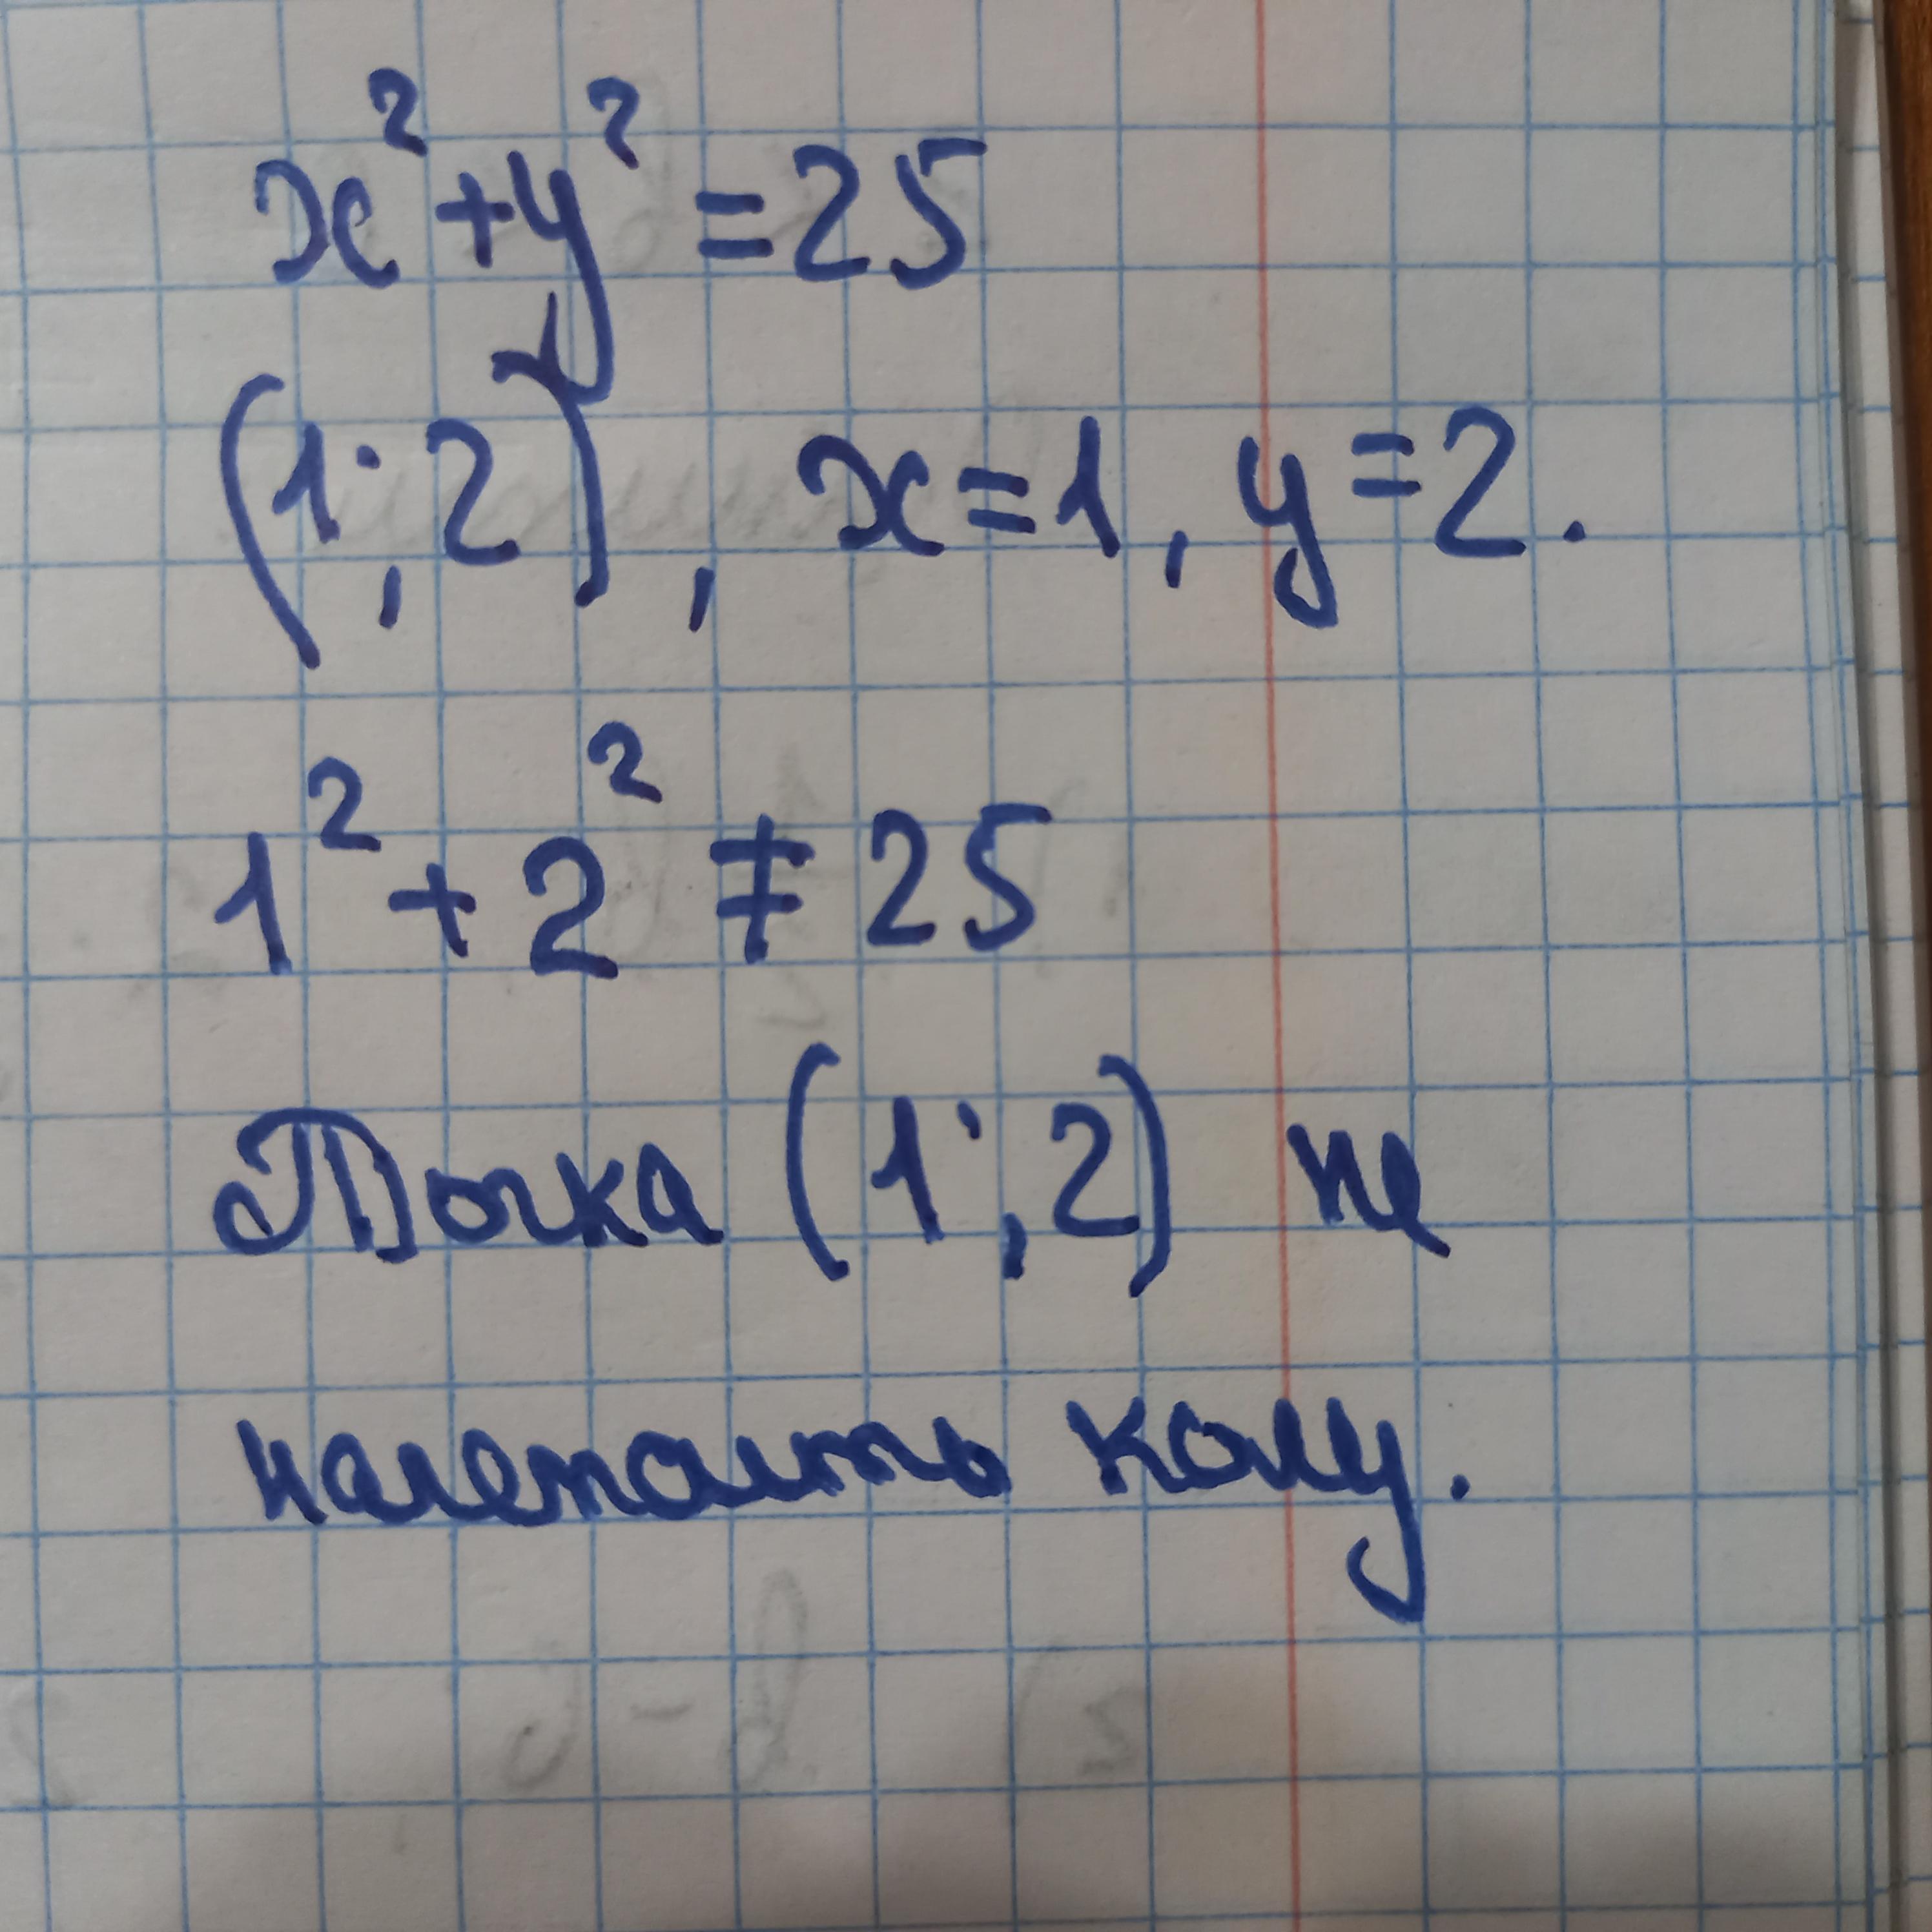 x² + y² = 25
(1; 2), x = 1, y = 2.
1² + 2² ≠ 25
Точка (1; 2) не
належить колу.